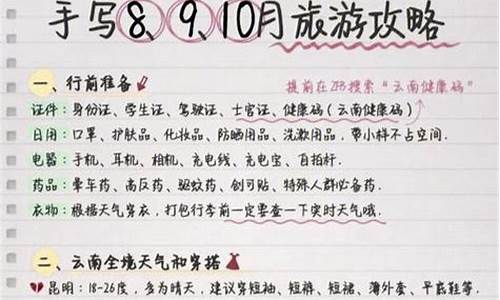 手写8、9、10月旅游攻略
一、行前准备
提前在ZFB搜索“云南健康码”
证件：身份证、学生证、驾驶证、士官证、健康码（云南健康码）
日用：口罩、护肤品、化妆品、防晒用品、洗漱用品、带小样不占空间.
电器：手机、耳机、相机、充电线、充电宝、自拍杆.
药品：晕车药、高反药、驱蚊药、创可贴、特殊人群必备药.
衣物：根据天气穿衣，打包行李前一定要查一下实时天气哦.
二、云南全境天气和穿搭
昆明：18-26度，多为晴天，建议穿短袖、短裤、短裙、薄外套、平底鞋等.